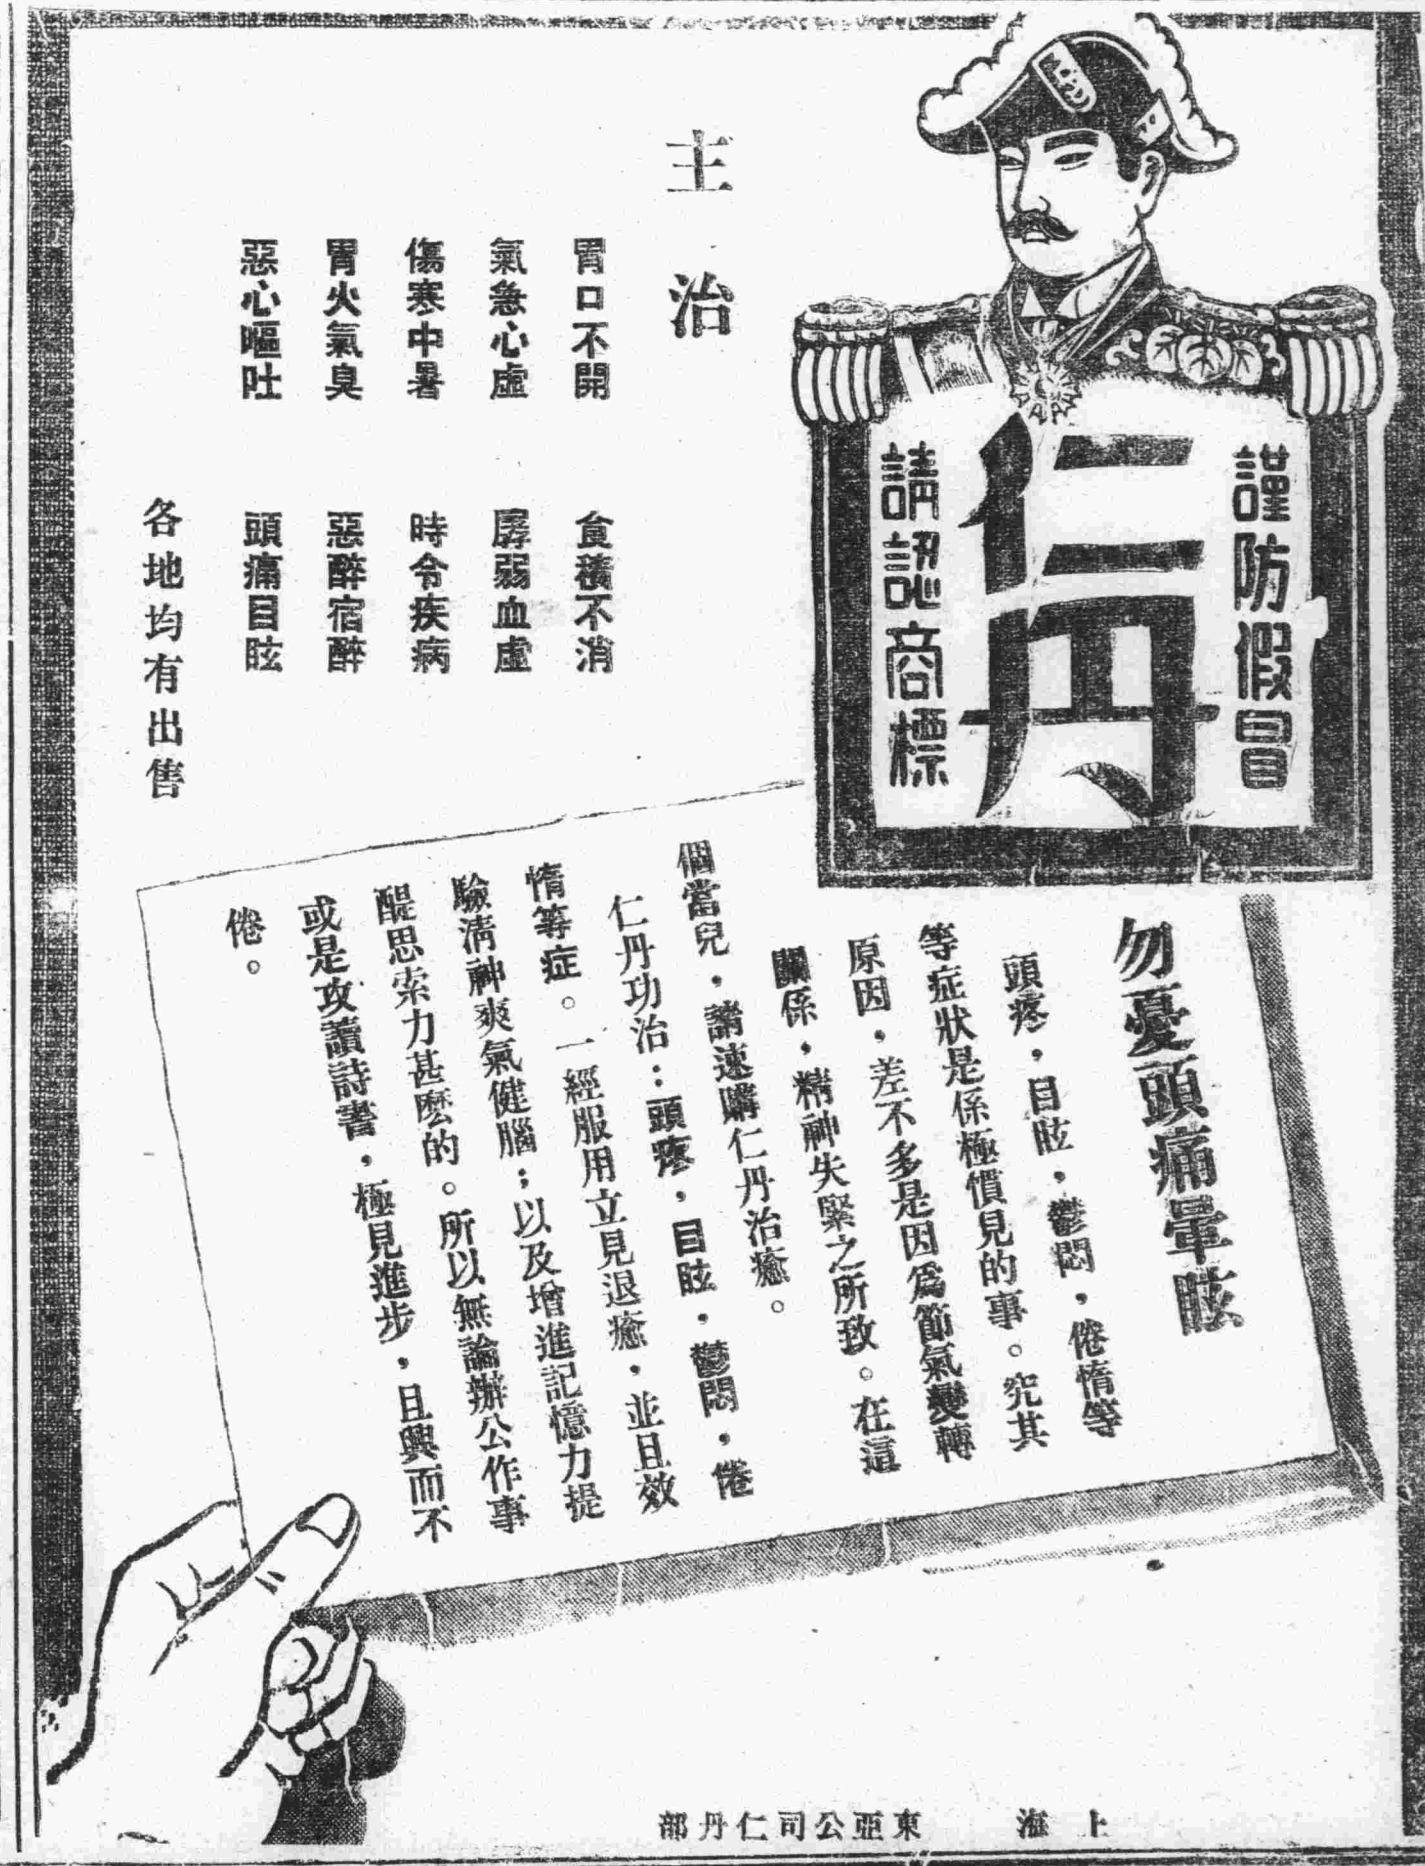 謹防假冒
仁丹
請認商標
主治
胃口不開 食積不消
氣急心虛 孱弱血虛
傷寒中暑 時令疾病
胃火氣臭 惡醉宿醉
惡心嘔吐 頭痛目眩
各地均有出售
勿憂頭痛暈眩
頭疼，目眩，鬱悶，倦惰等
等症狀是係極慣見的事。究其
原因，差不多是因爲節氣變轉
關係，精神失緊之所致。在這
個當兒，請速購仁丹治癒。
仁丹功治：頭疼，目眩，鬱悶，倦
惰等症。一經服用立見退癒，並且效
驗淸神爽氣健腦；以及增進記憶力提
醒思索力甚麽的。所以無論辦公作事
或是攻讀詩書，極見進步，且興而不
倦。
上海 東亞公司仁丹部